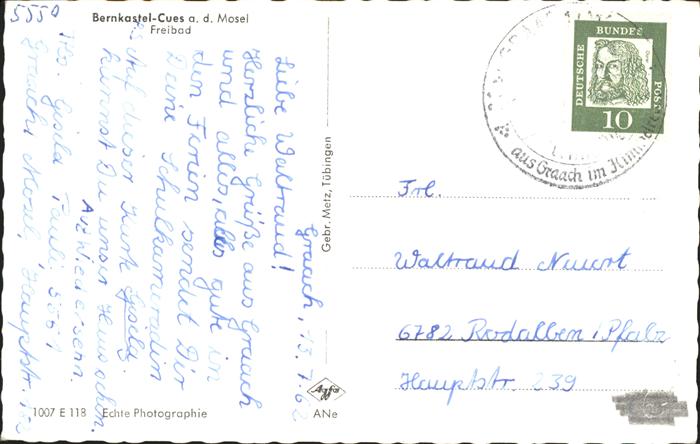 5550
Bernkastel-Cues a. d. Mosel
Freibad
Graach, 13.7.62
Liebe Waltraud!
Herzliche Grüße aus Graach
und alles, alles gute in
den Ferien sendet Dir
Deine Schulkameradin
Gisela.
Auf dieser Karte
kannst Du unser Haus sehen.
Auf Wiedersehn.
Abs. Gisela Pauli, 5551
Graach, Mosel, Hauptstr. 102
Gebr. Metz, Tübingen
DEUTSCHE BUNDESPOST
10
aus Graach im Himmelreich
Frl.
Waltraud Neuort
6782 Rodalben, Pfalz
Hauptstr. 239
1007 E 118 Echte Photographie
Agfa
ANe